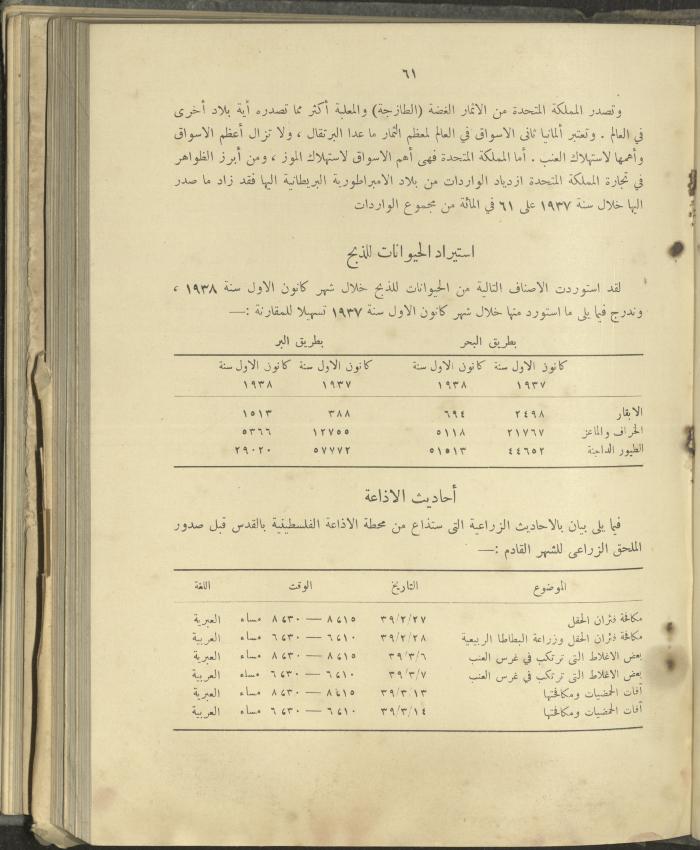 ٦١
وتصدر المملكة المتحدة من الاثمار الغضة (الطازجة) والمعلبة أكثر مما تصدره أية بلاد أخرى
في العالم . وتعتبر ألمانيا ثانى الاسواق في العالم لمعظم الثمار ما عدا البرتقال ، ولا تزال أعظم الاسواق
وأهمها لاستهلاك العنب . أما المملكة المتحدة فهى أهم الاسواق لاستهلاك الموز ، ومن أبرز الظواهر
في تجارة المملكة المتحدة ازدياد الواردات من بلاد الامبراطورية البريطانية اليها فقد زاد ما صدر
اليها خلال سنة ١٩٣٧ على ٦١ في المائة من مجموع الواردات
استيراد الحيوانات للذبح
لقد استوردت الاصناف التالية من الحيوانات للذبح خلال شهر كانون الاول سنة ١٩٣٨ ،
وندرج فيما يلى ما استورد منها خلال شهر كانون الاول سنة ١٩٣٧ تسهيلا للمقارنة :—
بطريق البحر بطريق البر
كانون الاول سنة كانون الاول سنة كانون الاول سنة كانون الاول سنة
١٩٣٧ ١٩٣٨ ١٩٣٧ ١٩٣٨
الابقار ٢٤٩٨ ٦٩٤ ٣٨٨ ١٥١٣
الخراف والماعز ٢١٧٦٧ ٥١١٨ ١٢٧٥٥ ٥٣٦٦
الطيور الداجنة ٤٤٦٥٢ ٥١٥١٣ ٥٧٧٧٢ ٢٩٠٢٠
أحاديث الاذاعة
فيما يلى بيان بالاحاديث الزراعية التى ستذاع من محطة الاذاعة الفلسطينية بالقدس قبل صدور
الملحق الزراعى للشهر القادم :—
الموضوع التاريخ الوقت اللغة
مكافحة فئران الحقل ٣٩/٢/٢٧ ٨،١٥ — ٨،٣٠ مساء العبرية
مكافحة فئران الحقل وزراعة البطاطا الربيعية ٣٩/٢/٢٨ ٦،١٠ — ٦،٣٠ مساء العربية
بعض الاغلاط التى ترتكب في غرس العنب ٣٩/٣/٦ ٨،١٥ — ٨،٣٠ مساء العبرية
بعض الاغلاط التى ترتكب في غرس العنب ٣٩/٣/٧ ٦،١٠ — ٦،٣٠ مساء العربية
آفات الحمضيات ومكافحتها ٣٩/٣/١٣ ٨،١٥ — ٨،٣٠ مساء العبرية
آفات الحمضيات ومكافحتها ٣٩/٣/١٤ ٦،١٠ — ٦،٣٠ مساء العربية